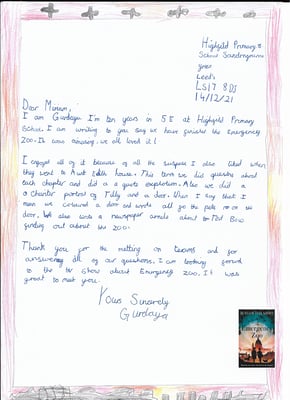 Highfield Primary
School Sandringham
Green
Leeds
LS17 8DJ
14/12/21
Dear Miriam,
I am Gurdaya I'm ten years in 5E at Highfield Primary
School. I am writing to you say we have finished the Emergency
Zoo. It was amazing. we all loved it!
I enjoyed all of it because of all the suspense I also liked when
they went to Aunt talk house. This term we did questions about
each chapter and did a quote explosion. Also we did a
a Character portrait of Tilly and a door. When I say that I
mean we coloured a door and words all go the pets are on the
door. We also wrote a newspaper article about
finding out about the zoo.
Thank you for the meeting on teams and for
answering all of our questions. I am looking forward
to the tv show about Emergency zoo. It was
great to meet you.
Yours Sincerely
Gurdaya
Emergency
Zoo